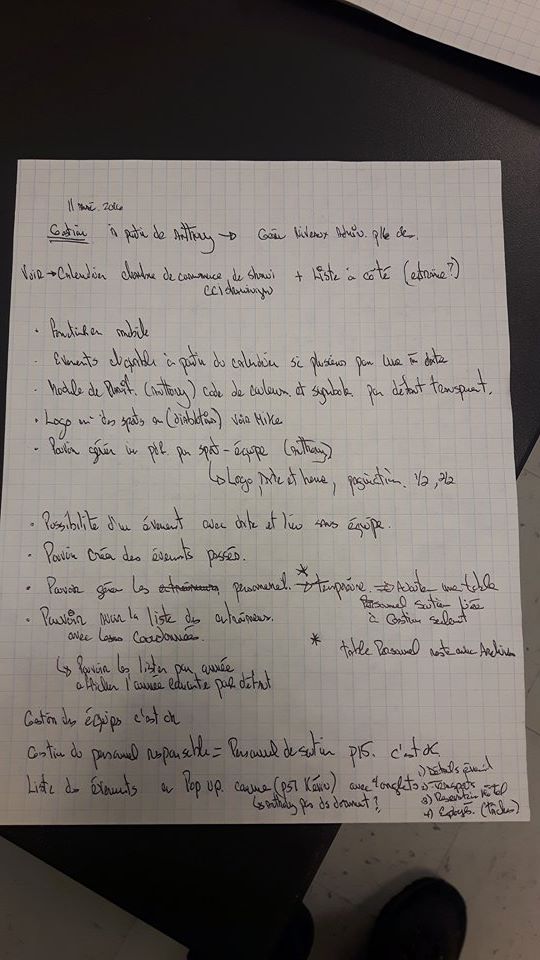 11 2016
Gestion à partir de Anthony → Créer Niveaux Admin.
Voir → Calendrier chambre de commerce de Shawi + Liste à côté (externe?)
CCI Shawinigan
· mobile
· Évènements cliquable à partir du calendrier si plusieurs par date
· Module de (Anthony) code de couleurs et symbole par défaut transparent.
· Logo des sports ou (diabolos) voir Mike
· Pouvoir gérer un par sport - équipe (Anthony)
↳ Logo, Date et heure, pagination. 1/2, 2/2
· Possibilité d'un évènement avec date et lieu sans équipe.
· Pouvoir créer des évènements passés.
· Pouvoir gérer les personnel. * → temporaire. ⇒ Ajouter une table
Personnel soutien liée
à Gestion seulement
· Pouvoir avoir la liste des entraineurs.
avec Coordonnées.
* table Personnel reste avec Archives
↳ Pouvoir les lister par année
afficher l'année courante par défaut
Gestion des équipes c'est ok
Gestion du personnel responsable = Personnel de soutien P15. c'est ok
Liste des évènements en Pop up. comme (PST Kévin) avec 4 onglets
↳ Anthony pas de document?
1) Détails
2) Transports
3) Réservation Hôtel
4) Employés. (tâches)